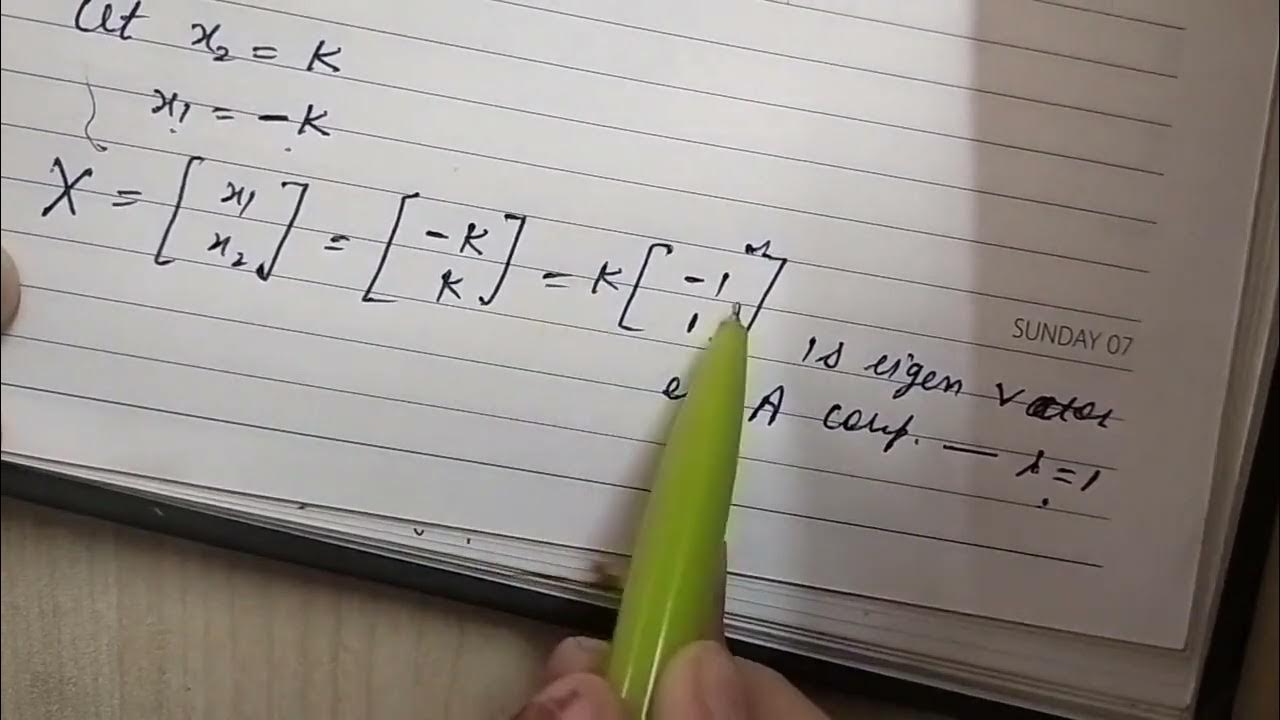 Let x₂ = K
x₁ = -K
X = [x₁ x₂] = [-K K] = K[-1 1] is eigen vector
A corrp. — λ=1
SUNDAY 07